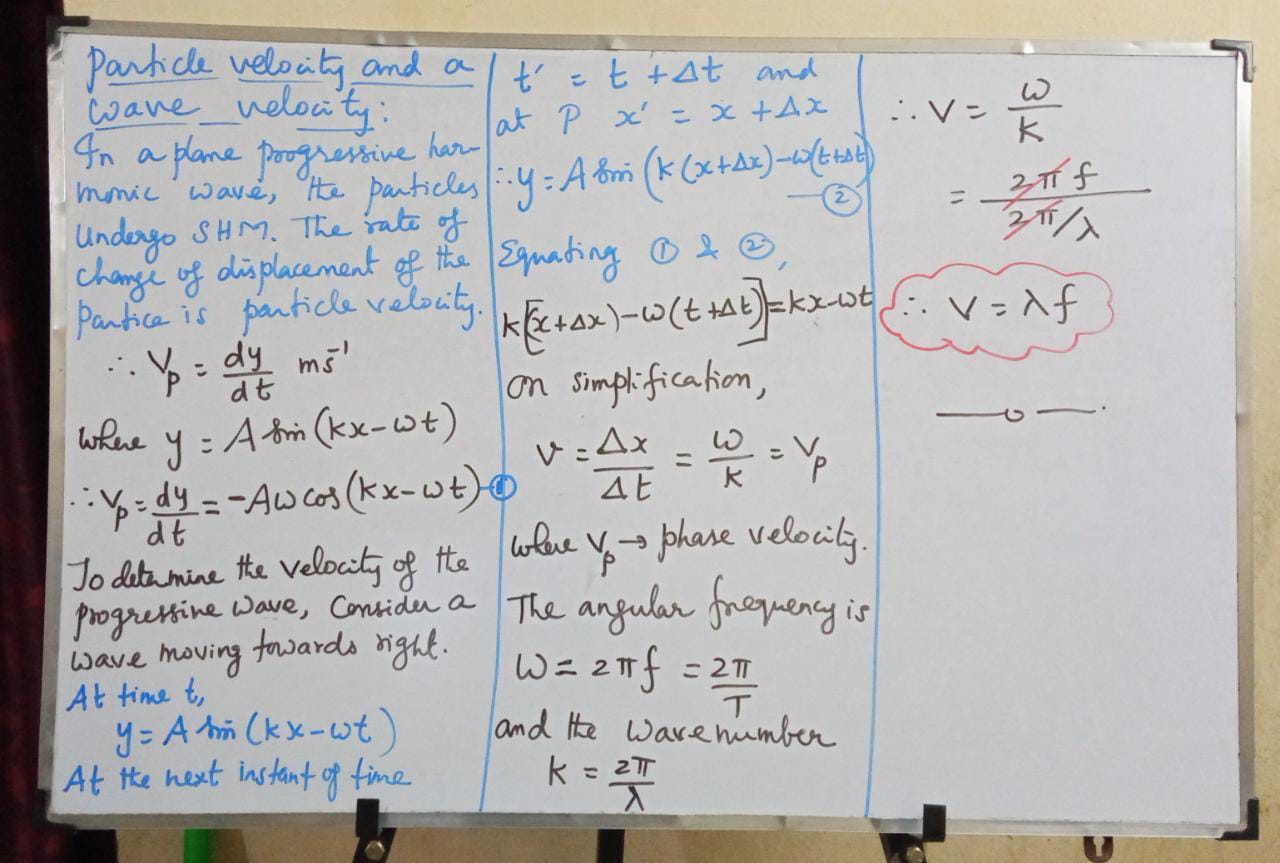 Particle velocity and a
wave velocity:
In a plane progressive har-
monic wave, the particles
undergo SHM. The rate of
change of displacement of the
Partice is particle velocity.
∴ Vp = dy/dt ms⁻¹
where y = A sin (kx-ωt)
∴ Vp = dy/dt = -Aω cos (kx-ωt) —①
To determine the velocity of the
progressive wave, Consider a
wave moving towards right.
At time t,
y = A sin (kx-ωt)
At the next instant of time
t' = t + Δt and
at P x' = x + Δx
∴ y = A sin (k(x+Δx)-ω(t+Δt)
—②
Equating ① & ②,
k[(x+Δx)-ω(t+Δt)] = kx-ωt
on simplification,
v = Δx/Δt = ω/k = Vp
where Vp → phase velocity.
The angular frequency is
ω = 2πf = 2π/T
and the wave number
k = 2π/λ
∴ V = ω/k
= 2πf / 2π/λ
∴ V = λf